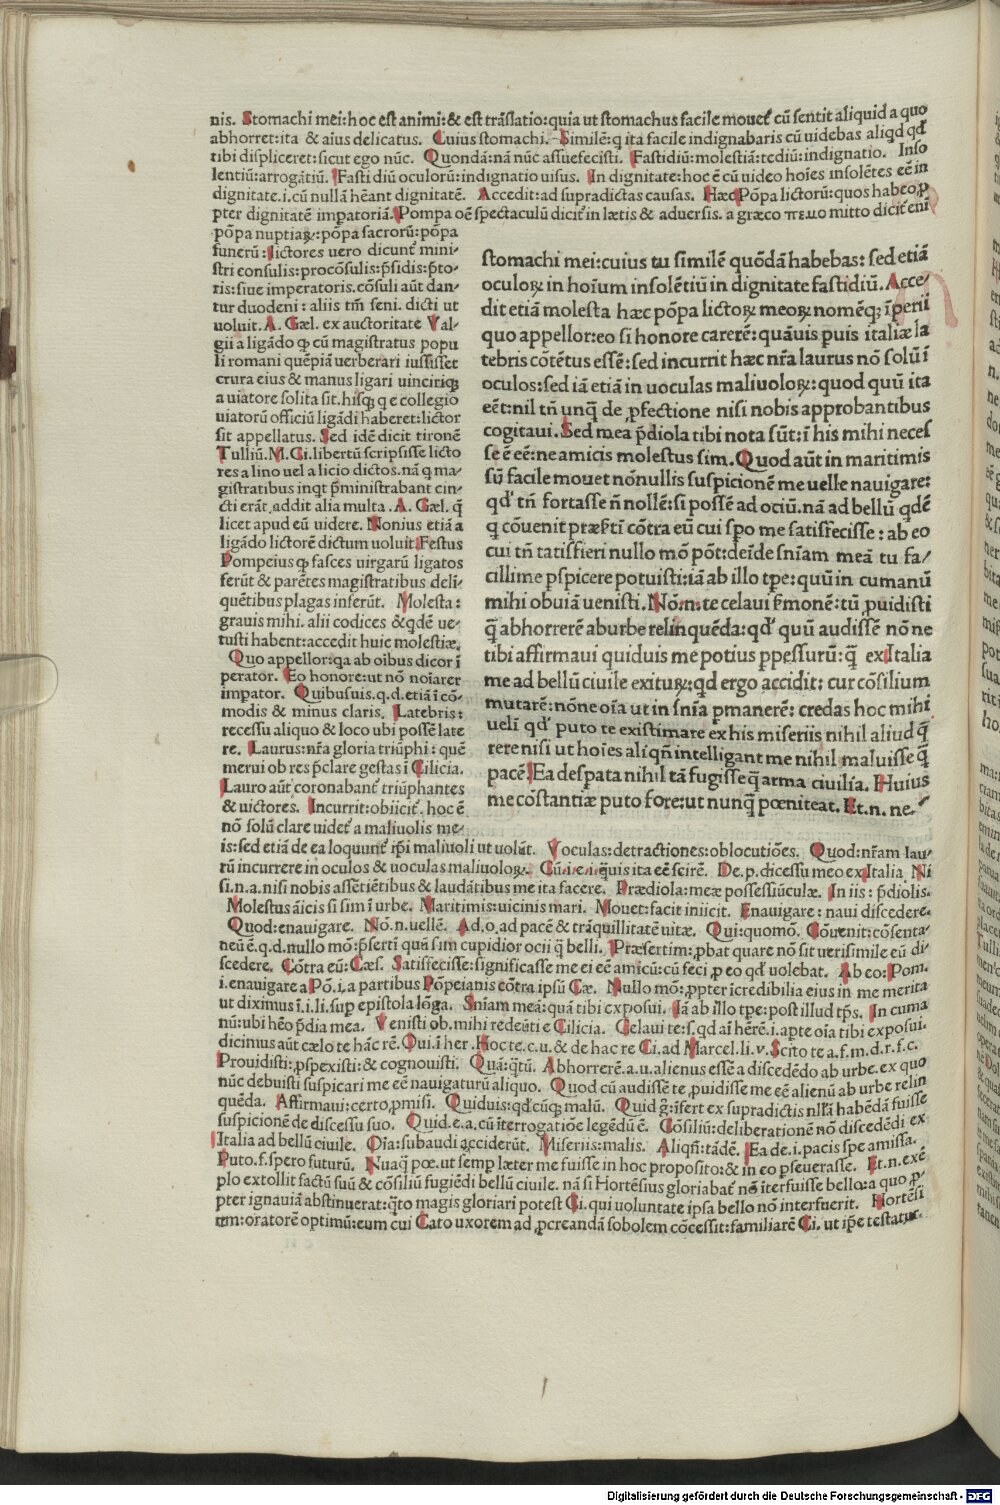 nis. Stomachi mei: hoc est animi: & est trāslatio: quia ut stomachus facile mouet᷑ cū sentit aliquid a quo
abhorret: ita & aius delicatus. Cuius stomachi. Similē: q ita facile indignabaris cū uidebas aliqd qd̄
tibi displiceret: sicut ego nūc. Quondā: nā nūc assuefecisti. Fastidiū: molestiā: tediū: indignatio. Inso
lentiū: arrogātiū. Fastidiū oculorū: indignatio uisus. In dignitate: hoc ē cū uideo hoies insolētes eē in
dignitate .i. cū nullā hēant dignitatē. Accedit: ad supradictas causas. Hæc Pōpa lictorū: quos habeo ꝓ
pter dignitatē impatoriā. Pompa oē spectaculū dicit᷑ in lætis & aduersis. a græco πεμο mitto dicit enī
pōpa nuptiaꝝ: pōpa sacrorū: pōpa
funerū: lictores uero dicunt᷑ mini/
stri consulis: procōsulis: p̄sidis: p̄to/
ris: siue imperatoris. cōsuli aūt dan/
tur duodeni: aliis tm̄ seni. dicti ut
uoluit. A. Gæl. ex auctoritate Val/
gii a ligādo qꝫ cū magistratus popu
li romani quēpiā uerberari iussisset
crura eius & manus ligari uinciriqꝫ
a uiatore solita sit. hisqꝫ q e collegio
uiatorū officiū ligādi haberet: lictor
sit appellatus. Sed idē dicit tironē
Tulliū. M. Ci. libertū scripsisse licto
res a lino uel a licio dictos. nā q ma/
gistratibus inqt p̄ministrabant cin/
cti erāt. addit alia multa. A. Gæl. q̄
licet apud eū uidere. Nonius etiā a
ligādo lictorē dictum uoluit. Festus
Pompeius qꝫ fasces uirgarū ligatos
ferūt & parētes magistratibus deli/
quētibus plagas inferūt. Molesta:
grauis mihi. alii codices & qdē ue/
tusti habent: accedit huic molestiæ.
Quo appellor: qa ab oibus dicor ī
perator. Eo honore: ut nō noīarer
impator. Quibusuis. q. d. etiā ī cō/
modis & minus claris. Latebris:
recessu aliquo & loco ubi possē late
re. Laurus: nr̄a gloria triūphi: quē
merui ob res p̄clare gestas ī Cilicia.
Lauro aūt coronabant᷑ triūphantes
& uictores. Incurrit: obiicit᷑. hoc ē
nō solū clare uidet᷑ a maliuolis me/
stomachi mei: cuius tu similē quōdā habebas: sed etiā
oculoꝝ in hoium insolētiū in dignitate fastidiū. Acce/
dit etiā molesta hæc pōpa lictoꝝ meoꝝ nomēqꝫ īperii
quo appellor: eo si honore carerē: quāuis puis italiæ la
tebris cōtētus essē: sed incurrit hæc nr̄a laurus nō solū ī
oculos: sed iā etiā in uoculas maliuoloꝝ: quod quū ita
eēt: nil tn̄ unq̄ de ꝓfectione nisi nobis approbantibus
cogitaui. Sed mea p̄diola tibi nota sūt: ī his mihi neces
se ē eē: ne amicis molestus sim. Quod aūt in maritimis
sū facile mouet nōnullis suspicionē me uelle nauigare:
qd̄ tn̄ fortasse n̄ nollē: si possē ad ociū. nā ad bellū qdē
q cōuenit præp̄ti cōtra eū cui spo me satisfecisse: ab eo
cui tn̄ tatisfieri nullo mō pōt: deīde sn̄iam meā tu fa/
cillime pspicere potuisti: iā ab illo tpe: quū in cumanū
mihi obuiā uenisti. Nō. n. te celaui f̄monē: tū ꝓuidisti
q̄ abhorrerē ab urbe relinquēda: qd̄ quū audissē nō ne
tibi affirmaui quiduis me potius ppessurū: q̄ ex Italia
me ad bellū ciuile exituꝝ: qd ergo accidit: cur cōsilium
mutarē: nōne oīa ut in sn̄ia pmanerē: credas hoc mihi
ueli qd̄ puto te existimare ex his miseriis nihil aliud q̄
rere nisi ut hoies aliqn̄ intelligant me nihil maluisse q̄
pacē. Ea despata nihil tā fugisse q̄ arma ciuilia. Huius
me cōstantiæ puto fore: ut nunq̄ pœniteat. Et. n. ne/
is: sed etiā de ea loquunt᷑ ip̄i maliuoli ut uolūt. Voculas: detractiones: oblocutiōes. Quod: nr̄am lau/
rū incurrere in oculos & uoculas maliuoloꝝ. Cū: i. e. n. quis ita eē scirē. De. p. dicessu meo ex Italia. Ni
si. n. a. nisi nobis assētiētibus & laudātibus me ita facere. Prædiola: meæ possessiūculæ. In iis: p̄diolis.
Molestus āicis si sim ī urbe. Maritimis: uicinis mari. Mouet: facit iniicit. Enauigare: naui discedere.
Quod: enauigare. Nō. n. uellē. Ad. o. ad pacē & trāquillitatē uitæ. Qui: quomō. Cōuenit: cōsenta/
neū ē. q. d. nullo mō: p̄serti quū sim cupidior ocii q̄ belli. Præsertim: ꝓbat quare nō sit uerisimile eū di/
scedere. Cōtra eū: Cæs. Satisfecisse: significasse me ei eē amicū: cū feci ꝓ eo qd̄ uolebat. Ab eo: Pom.
i. enauigare a Pō. i. a partibus Pōpeianis cōtra ipsū Cæ. Nullo mō: ꝓpter īcredibilia eius in me merita
ut diximus ī. i. li. sup epistola lōga. Sn̄iam meā: quā tibi exposui. Iā ab illo tpe: post illud tp̄s. In cuma
nū: ubi hēo p̄dia mea. Venisti ob. mihi redeūti e Cilicia. Celaui te: s. qd aī hērē. i. apte oīa tibi exposui.
dicimus aūt cælo te hāc rē. Qui. ī her. Hoc te. c. u. & de hac re Ci. ad Marcel. li. v. Scito te a. f. m. d. r. f. c.
Prouidisti: pspexisti: & cognouisti. Quā: q̄tū. Abhorrerē. a. u. alienus essē a discedēdo ab urbe. ex quo
nūc debuisti suspicari me eē nauigaturū aliquo. Quod cū audissē te, puidisse me eē alienū ab urbe relin
quēda. Affirmaui: certo ꝓmisi. Quiduis: qd̄cūqꝫ malū. Quid ḡ: īfert ex supradictis nllā habēdā fuisse
suspicionē de discessu suo. Quid. e. a. cū īterrogatiōe legēdū ē. Cōsiliū: deliberationē nō discedēdi ex
Italia ad bellū ciuile. Oīa: subaudi acciderūt. Miseriis: malis. Aliqn̄: tādē. Ea de. i. pacis spe amissa.
Puto. f. spero futurū. Nuaq̄ pœ. ut semp læter me fuisse in hoc proposito: & in eo pseuerasse. Et. n. exē
plo extollit factū suū & cōsiliū fugiēdi bellū ciuile. nā si Hortēsius gloriabat᷑ nō īterfuisse bello: a quo ꝓ/
pter ignauiā abstinuerat: q̄to magis gloriari potest Ci. qui uoluntate ipsa bello nō interfuerit. Hortēsi
um: oratorē optimū: eum cui Cato uxorem ad ꝓcreandā sobolem cōcessit: familiarē Ci. ut ip̄e testatur.
Digitalisierung gefördert durch die Deutsche Forschungsgemeinschaft - DFG